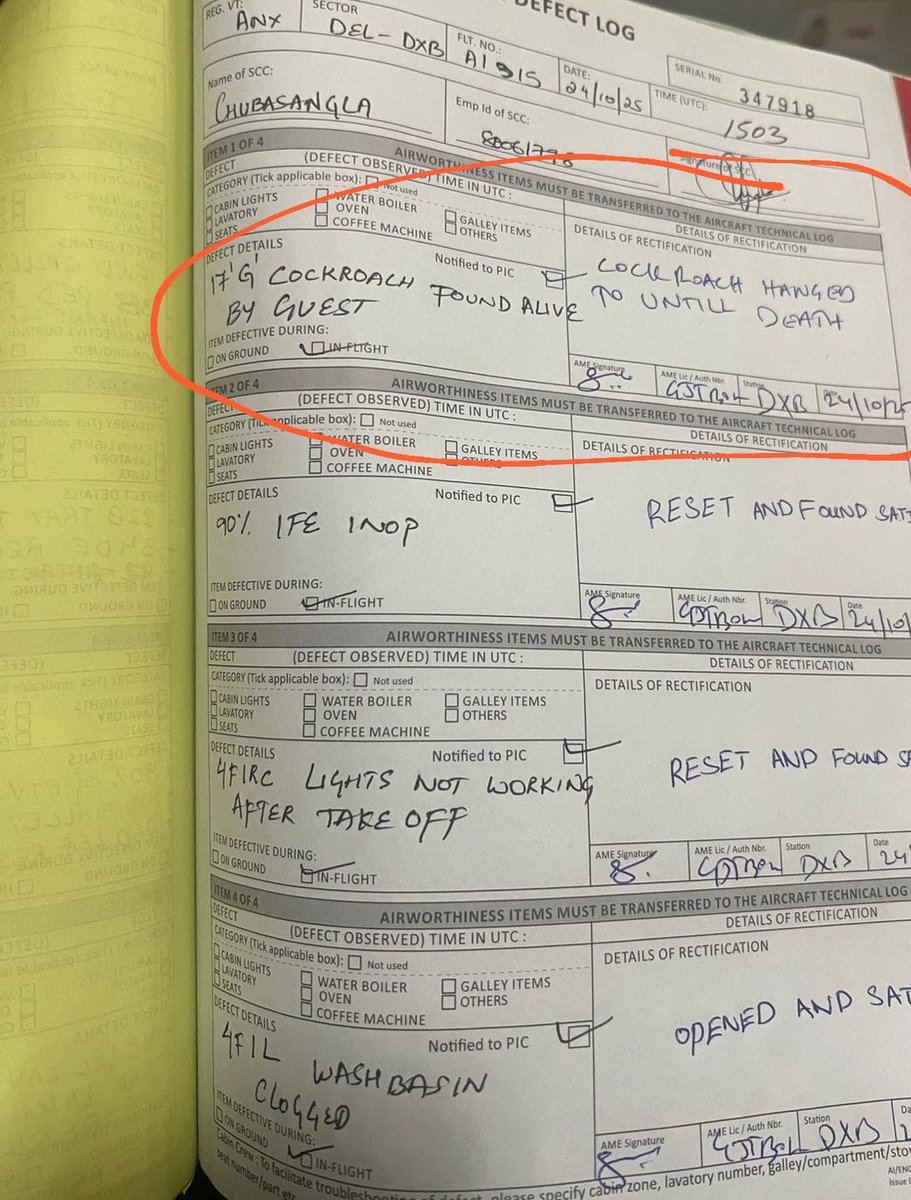 DEFECT LOG
REG. VT:
ANX
SECTOR
DEL - DXB
FLT. NO.:
AI 915
DATE:
24/10/25
SERIAL No. 347918
TIME (UTC):
1503
Name of SCC:
CHUBASANGLA
Emp Id of SCC:
Signature of SCC
ITEM 1 OF 4 AIRWORTHINESS ITEMS MUST BE TRANSFERRED TO THE AIRCRAFT TECHNICAL LOG
DEFECT (DEFECT OBSERVED) TIME IN UTC :
DETAILS OF RECTIFICATION
CATEGORY (Tick applicable box): Not used
CABIN LIGHTS WATER BOILER GALLEY ITEMS
LAVATORY OVEN OTHERS
SEATS COFFEE MACHINE
DEFECT DETAILS Notified to PIC
17'G' COCKROACH FOUND ALIVE
BY GUEST
ITEM DEFECTIVE DURING:
ON GROUND IN-FLIGHT
DETAILS OF RECTIFICATION
COCKROACH HANGED
TO UNTILL DEATH
AME Signature AME Lic / Auth Nbr. Station
DXB 24/10/25
ITEM 2 OF 4 AIRWORTHINESS ITEMS MUST BE TRANSFERRED TO THE AIRCRAFT TECHNICAL LOG
DEFECT (DEFECT OBSERVED) TIME IN UTC :
DETAILS OF RECTIFICATION
CATEGORY (Tick applicable box): Not used
CABIN LIGHTS WATER BOILER GALLEY ITEMS
LAVATORY OVEN OTHERS
SEATS COFFEE MACHINE
DEFECT DETAILS Notified to PIC
90% IFE INOP
ITEM DEFECTIVE DURING:
ON GROUND IN-FLIGHT
DETAILS OF RECTIFICATION
RESET AND FOUND SAT
AME Signature AME Lic / Auth Nbr. Station Date
DXB 24/10/
ITEM 3 OF 4 AIRWORTHINESS ITEMS MUST BE TRANSFERRED TO THE AIRCRAFT TECHNICAL LOG
DEFECT (DEFECT OBSERVED) TIME IN UTC :
DETAILS OF RECTIFICATION
CATEGORY (Tick applicable box): Not used
CABIN LIGHTS WATER BOILER GALLEY ITEMS
LAVATORY OVEN OTHERS
SEATS COFFEE MACHINE
DEFECT DETAILS Notified to PIC
4F1RC LIGHTS NOT WORKING
AFTER TAKE OFF
ITEM DEFECTIVE DURING:
ON GROUND IN-FLIGHT
DETAILS OF RECTIFICATION
RESET AND FOUND SA
AME Signature AME Lic / Auth Nbr. Station Date
DXB 24/
ITEM 4 OF 4 AIRWORTHINESS ITEMS MUST BE TRANSFERRED TO THE AIRCRAFT TECHNICAL LOG
DEFECT (DEFECT OBSERVED) TIME IN UTC :
DETAILS OF RECTIFICATION
CATEGORY (Tick applicable box): Not used
CABIN LIGHTS WATER BOILER GALLEY ITEMS
LAVATORY OVEN OTHERS
SEATS COFFEE MACHINE
DEFECT DETAILS Notified to PIC
4F1L WASH BASIN
CLOGGED
ITEM DEFECTIVE DURING:
ON GROUND IN-FLIGHT
DETAILS OF RECTIFICATION
OPENED AND SAT
AME Signature AME Lic / Auth Nbr. Station
DXB
Cabin Crew : To facilitate troubleshooting of defect, please specify cabin zone, lavatory number, galley/compartment/stow
seat number/part etc
AI/ENG
Issue